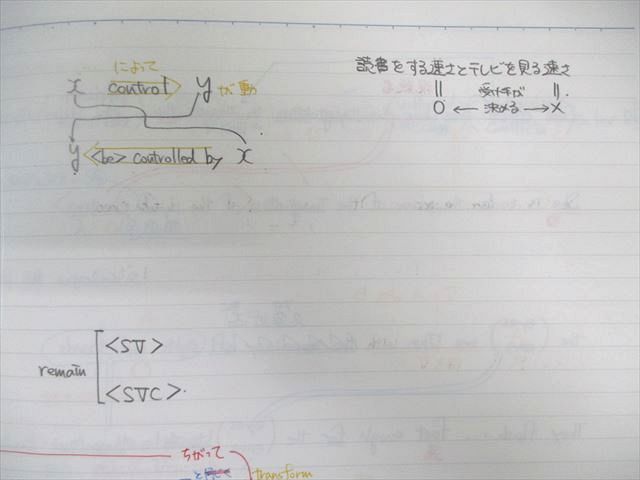 によって
x control y が動
y <be> controlled by x
読書をする速さとテレビを見る速さ
|| 受け手が ||
○ ← 決める → ×
remain
<SV>
<SVC>
ちがって
transform